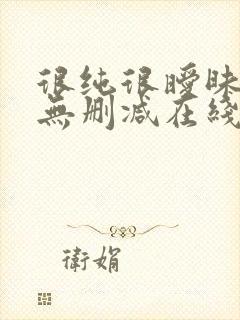 很纯很曖昧
無删减在綫
衛娟